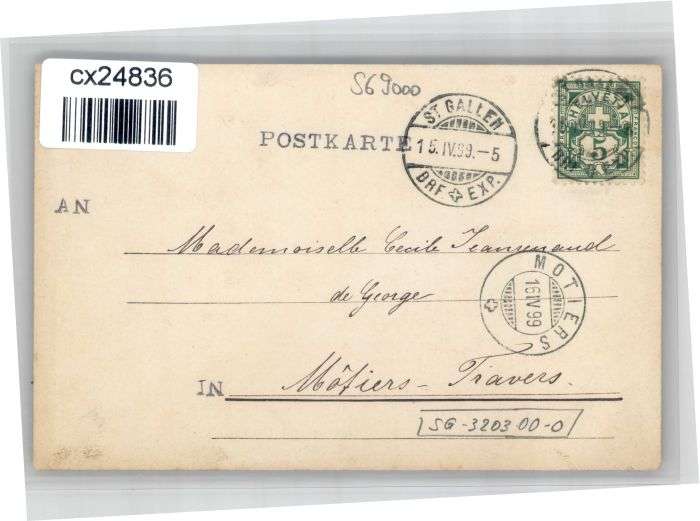 cx24836
SG 9000
ST GALLEN
15.IV.99.-5
BRF EXP.
HELVETIA
5
POSTKARTE
AN
Mademoiselle Cécile Jeanrenaud
de George
MOTIERS
16 IV 99
IN
Môtiers - Travers.
SG-3203-00-0